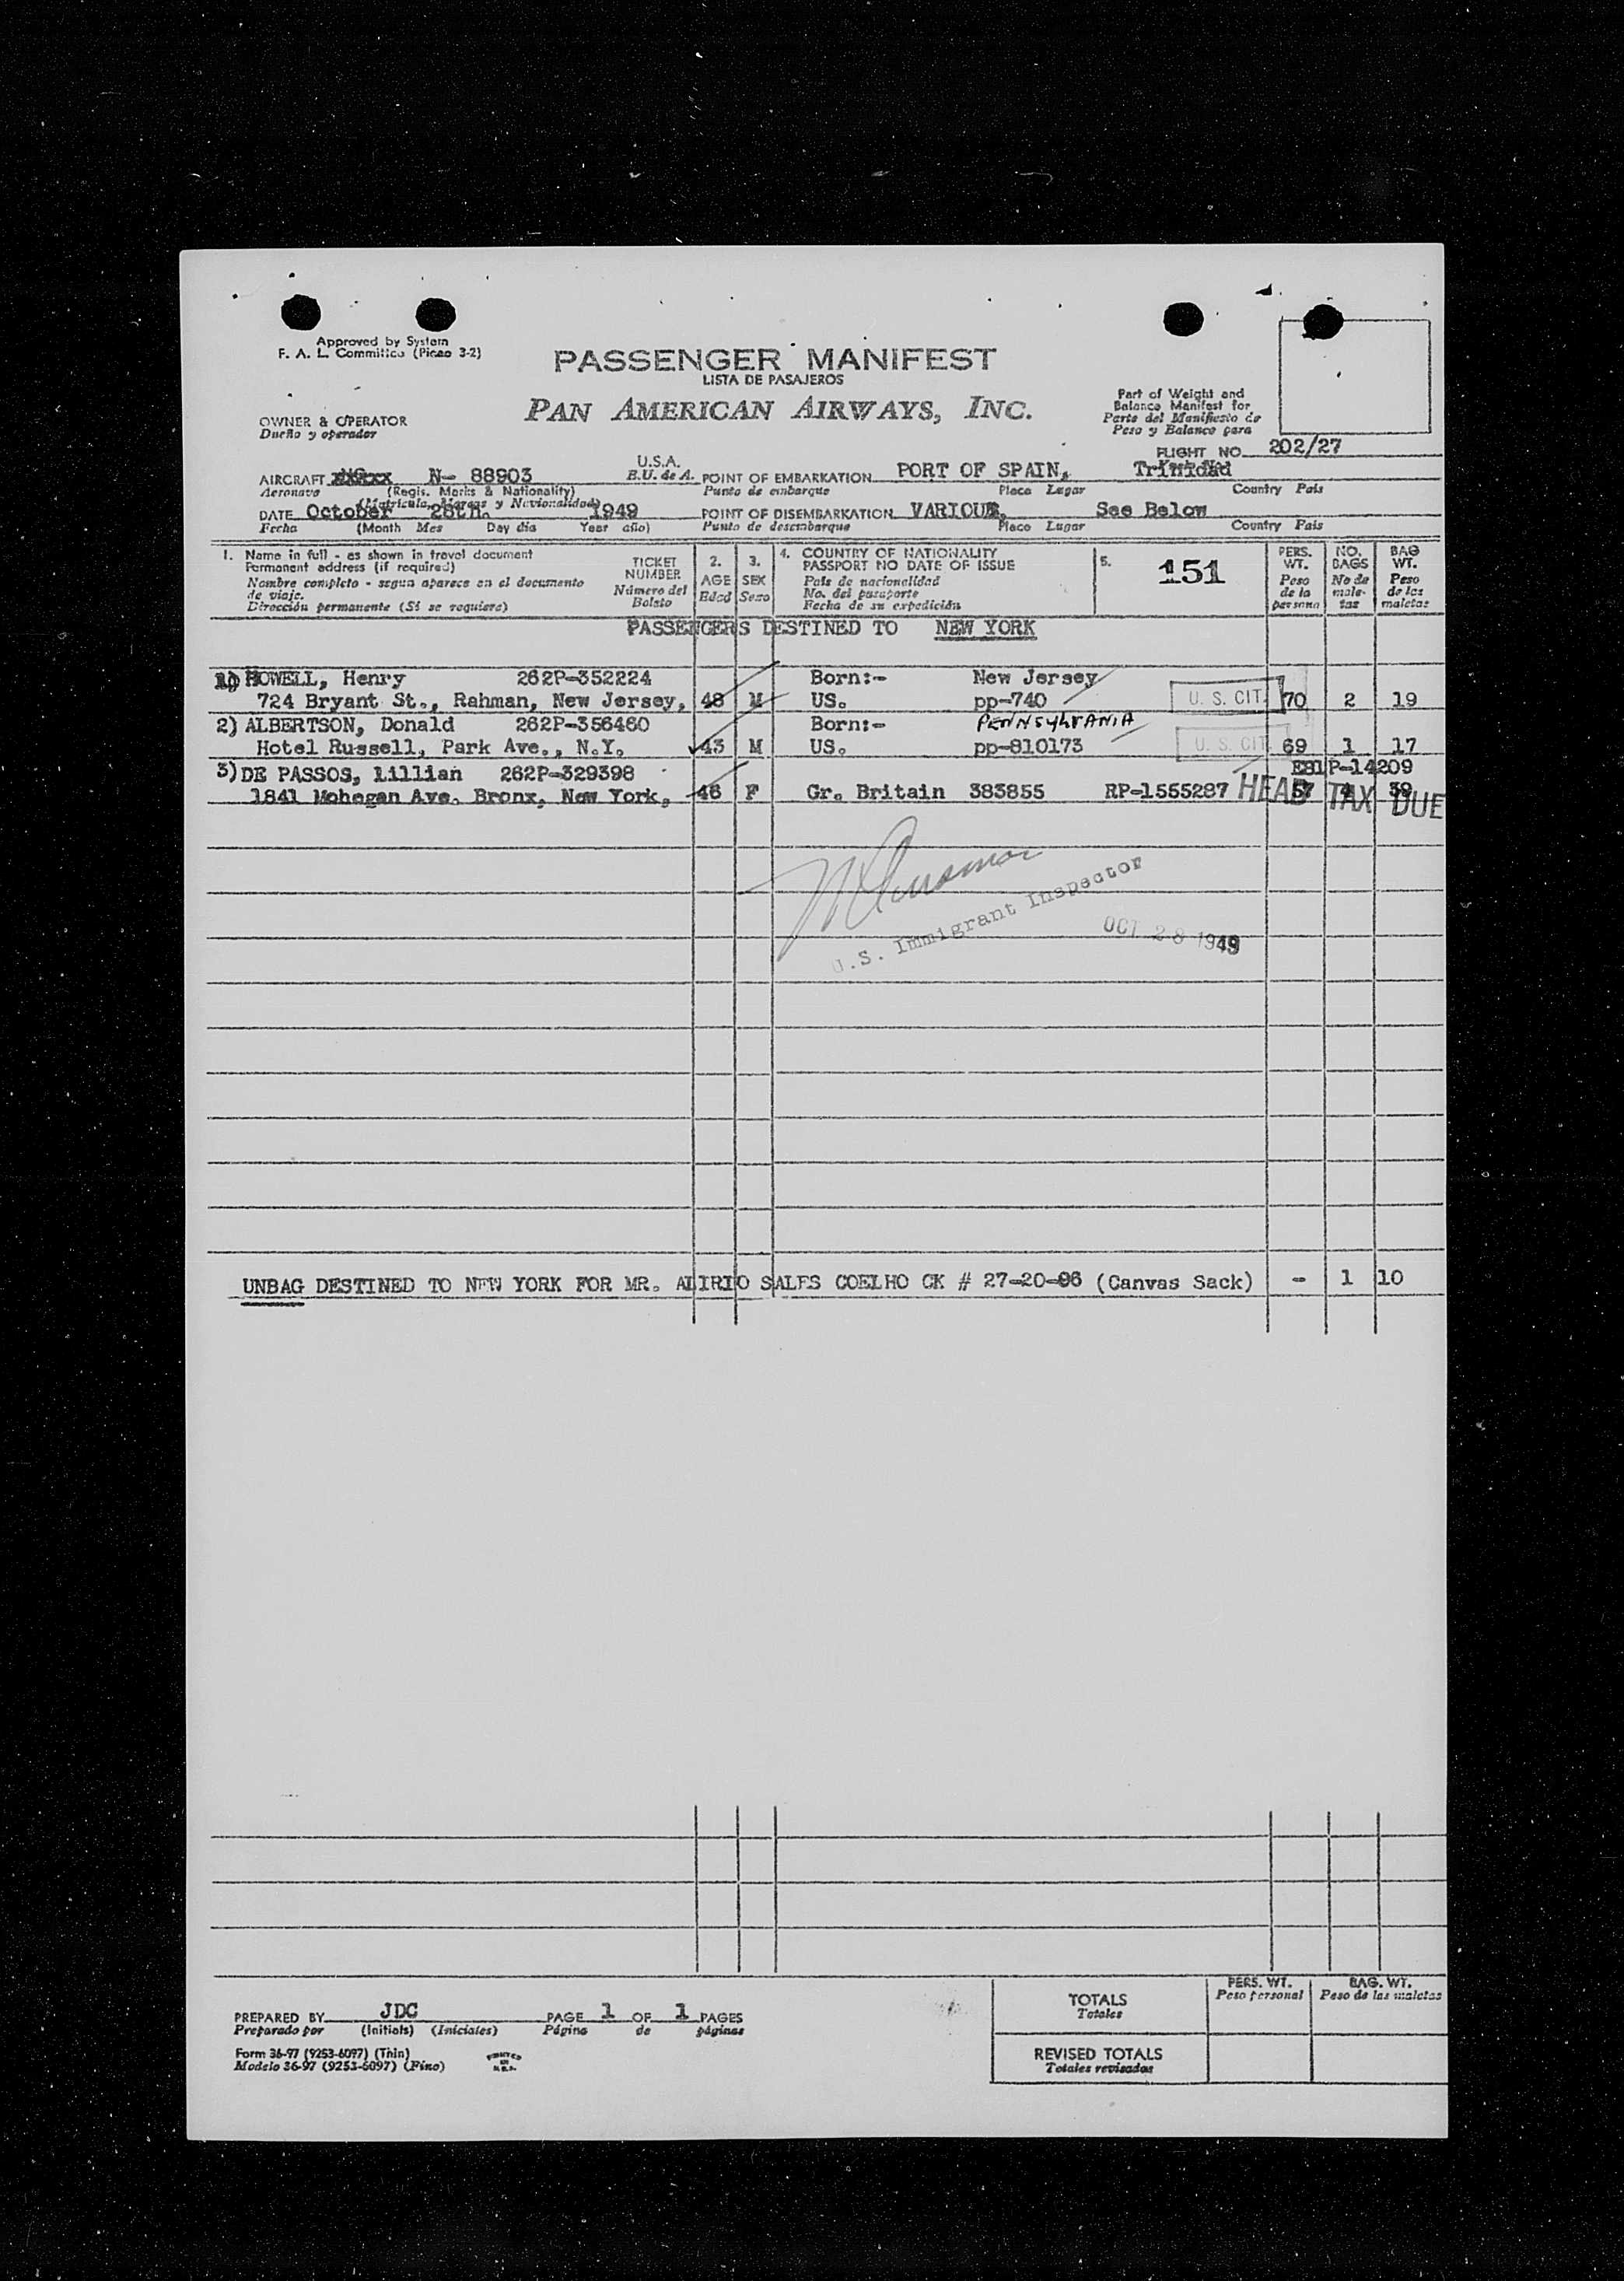 Approved by System
F. A. L. Committee (Picao 3-2)
PASSENGER MANIFEST
LISTA DE PASAJEROS
PAN AMERICAN AIRWAYS, INC.
Part of Weight and
Balance Manifest for
Parte del Manifiesto de
Peso y Balance para
OWNER & OPERATOR
Dueño y operador
FLIGHT NO. 202/27
AIRCRAFT N- 88903 U.S.A. POINT OF EMBARKATION PORT OF SPAIN, Trinidad
Aeronave (Regis. Marks & Nationality) E.U. de A. Punto de embarque Place Lugar Country País
(Matrícula, Marcas y Nacionalidad)
DATE October 28th. 1949 POINT OF DISEMBARKATION VARIOUS, See Below
Fecha (Month Mes Day día Year año) Punto de desembarque Place Lugar Country País
1. Name in full - as shown in travel document
Permanent address (if required)
Nombre completo - segun aparece en el documento
de viaje.
Dirección permanente (Si se requiere)
TICKET
NUMBER
Número del
Boleto
2.
AGE
Edad
3.
SEX
Sexo
4. COUNTRY OF NATIONALITY
PASSPORT NO DATE OF ISSUE
País de nacionalidad
No. del pasaporte
Fecha de su expedición
5. 151
PERS.
WT.
Peso
de la
persona
NO.
BAGS
No de
male-
tas
BAG
WT.
Peso
de las
maletas
PASSENGERS DESTINED TO NEW YORK
1) HOWELL, Henry 262P-352224 Born:- New Jersey
724 Bryant St., Rahman, New Jersey, 48 M US. pp-740 U. S. CIT. 70 2 19
2) ALBERTSON, Donald 262P-356460 Born:- PENNSYLVANIA
Hotel Russell, Park Ave., N.Y. 43 M US. pp-810173 U. S. CIT. 69 1 17
3) DE PASSOS, Lillian 262P-329398 P-14209
1841 Mohegan Ave. Bronx, New York, 46 F Gr. Britain 383855 RP-1555287 57 39
HEAD TAX DUE
U.S. Immigrant Inspector
OCT 28 1949
UNBAG DESTINED TO NEW YORK FOR MR. ALIRIO SALES COELHO CK # 27-20-96 (Canvas Sack) - 1 10
PERS. WT.
Peso personal
BAG. WT.
Peso de las maletas
TOTALS
Totales
REVISED TOTALS
Totales revisados
PREPARED BY JDC PAGE 1 OF 1 PAGES
Preparado por (Initials) (Iniciales) Página de páginas
Form 36-97 (9253-6097) (Thin)
Modelo 36-97 (9253-6097) (Fino)
PRINTED
IN
U.S.A.